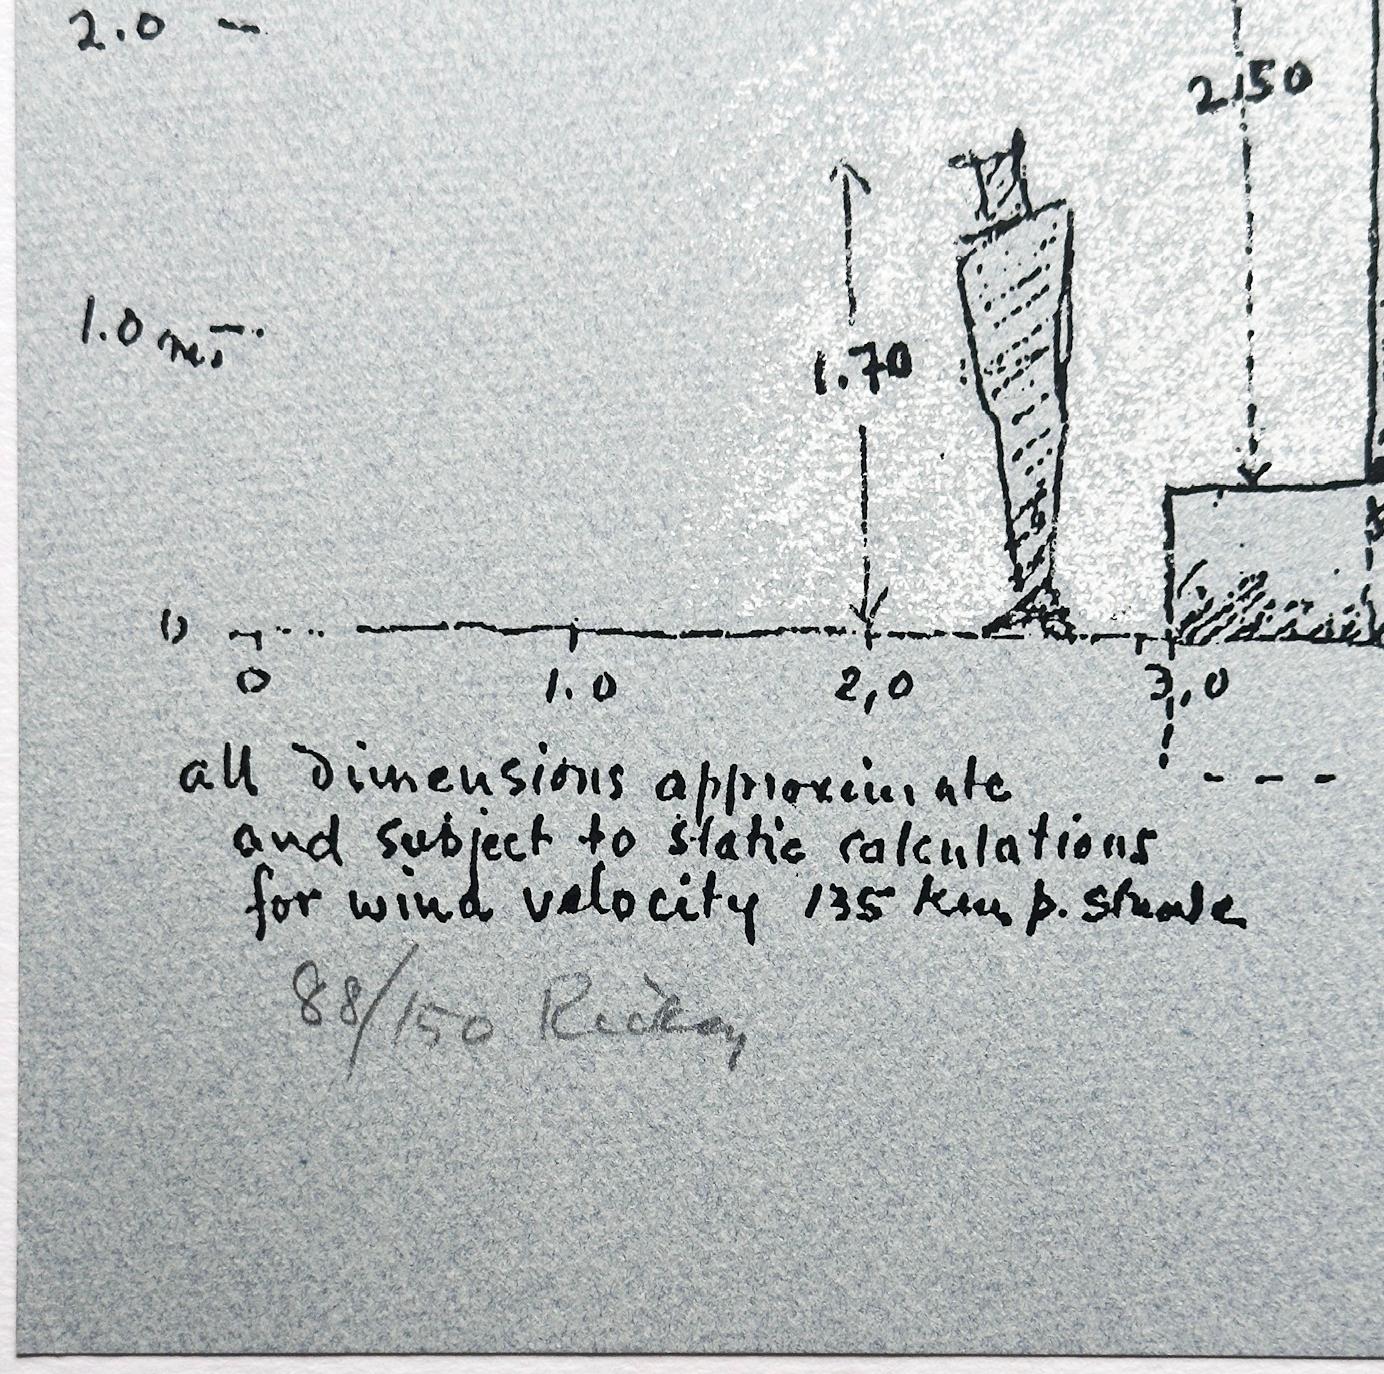 2.0 –
2.50
1.0 mt –
1.70
0
0 1.0 2,0 3,0
all dimensions approximate
and subject to static calculations
for wind velocity 135 km p. stunde
88/150 Rickey